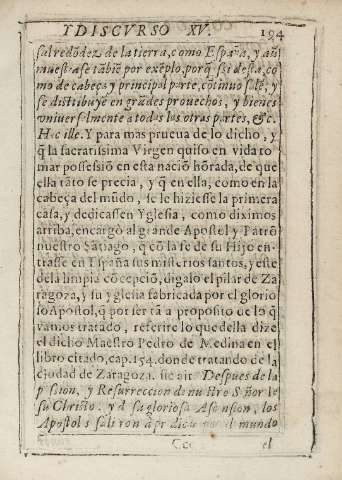 Y DISCVRSO XV. 194
sal redõdez de la tierra, como España, y aũ
muestrase tãbiẽ por exẽplo, porq̃ ssi desta, co
mo de cabeça y principal parte, cõtinuo sale; y
se distribuye en grãdes prouechos, y bienes
vniuersalmente a todas las otras partes, &c.
Hæc ille. Y para mas prueua de lo dicho, y
q̃ la sacratissima Virgen quiso en vida to
mar possessiõ en esta naciõ hõrada, de que
ella tãto se precia, y q̃ en ella, como en la
cabeça del mũdo, se le hiziesse la primera
casa, y dedicassen Yglesia, como diximos
arriba, encargò al grande Apostol y Patrõ
nuestro Sãtiago, q̃ cõ la fe de su Hijo en-
trasse en España sus misterios santos, y este
de la limpia cõcepciõ, digalo el pilar de Za
ragoza, y su yglesia fabricada por el glorio
so Apostol, q̃ por ser tã a proposito de lo q̃
vamos tratado, referire lo que della dize
el dicho Maestro Pedro de Medina en el
libro citado, cap. 154. donde tratando de la
ciudad de Zaragoza. sic ait. Despues de la
passion, y Resurreccion de nuestro Señor Ie
su Christo, y d sa gloriosa Ascension, los
Apostoles saliron a pr dicar por el mundo
Ccc el